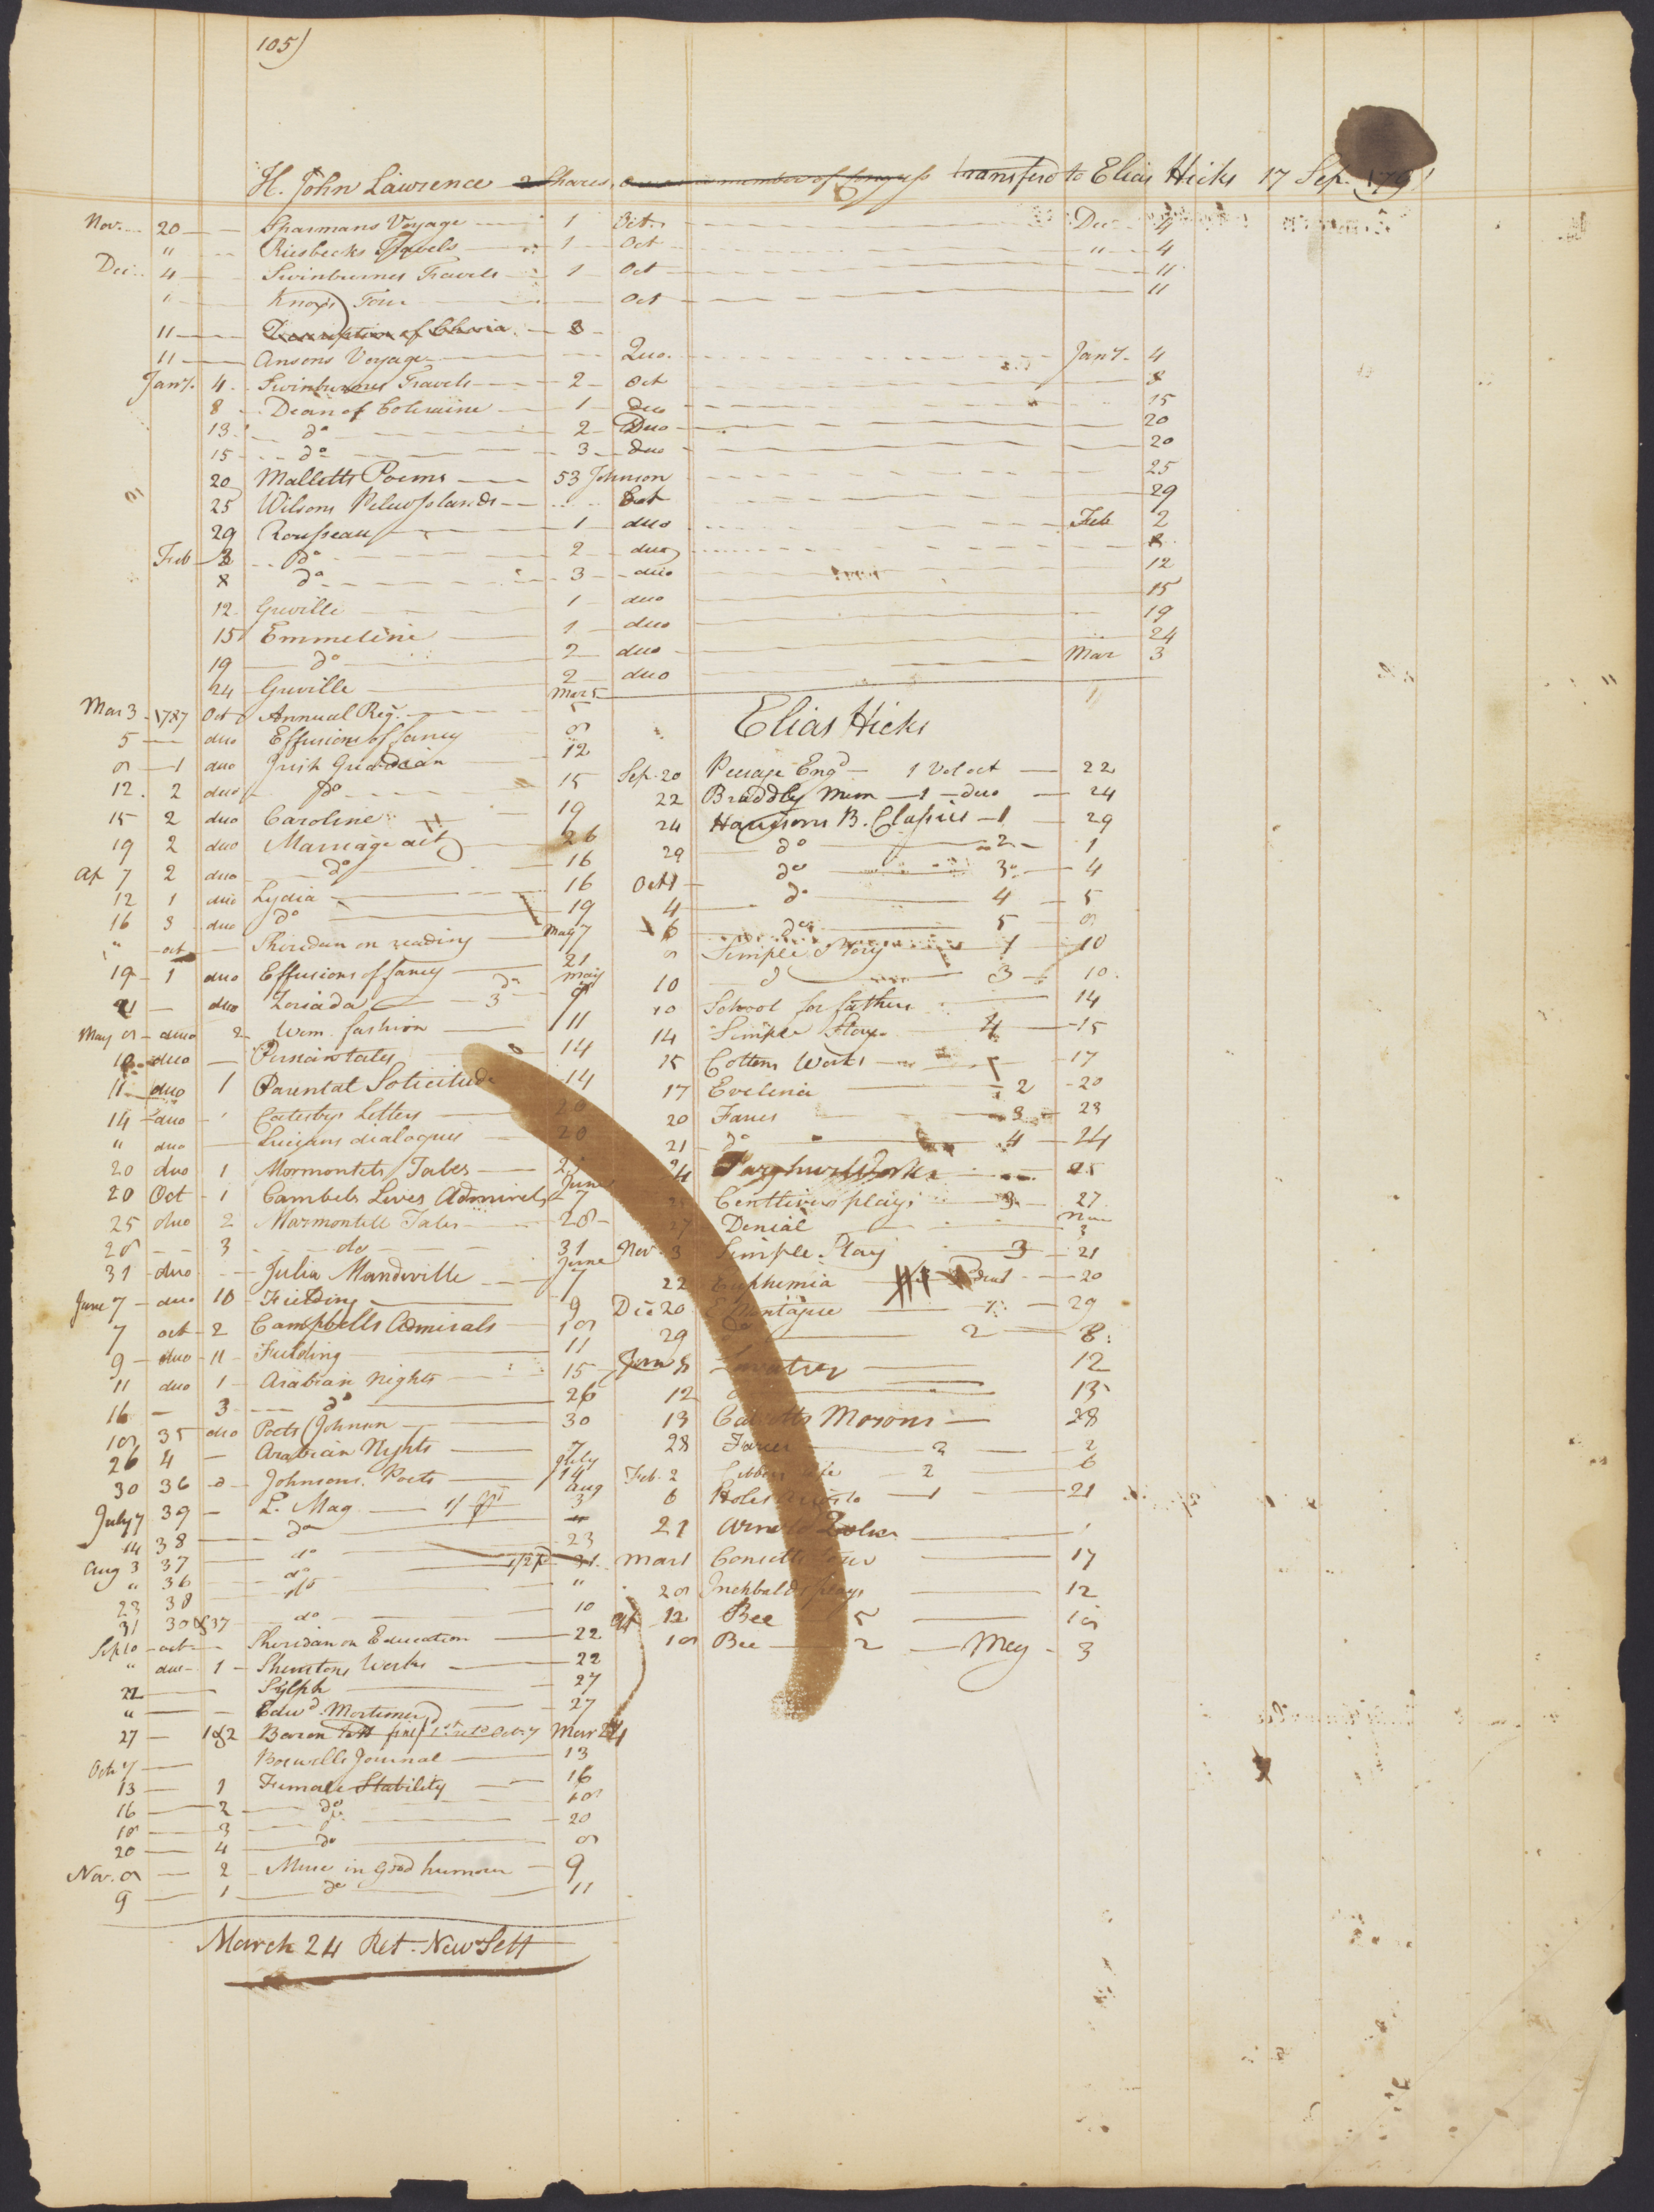 105)
H. John Lawrence 2 Shares, transferd to Elias Hicks 17 Sep. 1791
Nov. 20 Sparmans Voyage 1 Oct. Dec 4
" Riesbecks Travels 1 Oct " 4
Dec 4 Swinburnes Travels 1 Oct 11
" Knox's Tour Oct 11
11 Description of 3
11 Ansons Voyage Quo. Jany. 4
Jany. 4 Swinburnes Travels 2 Oct 8
8 Dean of Coleraine 1 duo 15
13 do 2 Duo 20
15 do 3 duo 20
20 Malletts Poems 53 Johnson 25
25 Wilsons Pelew Islands Oct 29
29 Rousseau 1 duo Feb 2
Feb do 2 duo 8
8 do 3 duo 12
12 Greville 1 duo 15
15 Emmeline 1 duo 19
19 do 2 duo 24
24 Greville 2 duo Mar 3
Mar 3 1787 Oct Annual Reg. Mar 5
5 duo Effusions of fancy 8
8 1 duo Irish Guardian 12
12 2 duo do 15
15 2 duo Caroline 19
19 2 duo Marriage act 26
Ap 7 2 duo do 16
12 1 duo Lydia 16
16 3 duo do 19
" oct Sheridan on reading May 7
19 1 duo Effusions of fancy 21
21 duo Zoriada do 3 May 8
May 8 duo 2 Wom. fashion 11
10 duo Persian tales 14
11 duo 1 Parental Solicitude 14
14 duo 1 Letters 20
" duo Lucians dialogues 20
20 duo 1 Mormontels Tales 25
20 Oct 1 Cambels Lives Admirals June 7
25 duo 2 Marmontell Tales 28
28 3 do 31
31 duo Julia Mandeville June 7
June 7 duo 10 Fielding 9
7 oct 2 Campbells Admirals 18
9 duo 11 Fielding 11
11 duo 1 Arabian Nights 15
16 3 do 26
18 35 duo Poets (Johnson 30
26 4 Arabian Nights 7
30 36 do Johnsons Poets July 14
July 7 39 L. Mag Aug 3
14 38 do "
Aug 3 37 do 23
" 36 do 31
23 38 do "
31 30 & 37 do 10
Sep 10 oct Sheridan on Education 22
" duo 1 Shenstons Works 22
22 Sylph 27
" Edwd. Mortimer 27
27 1&2 Baron Tott Mar 24
Oct 7 Boswells Journal 13
13 1 Female Stability 16
16 2 do 18
18 3 do 20
20 4 do 8
Nov. 8 2 Muse in good humour 9
9 1 do 11
March 24 Ret. New Sett
Elias Hicks
Sep. 20 Peerage Engd 1 Vol oct 22
22 Braddly Mem 1 duo 24
24 Harrisons B. Classics 1 29
29 do 2 1
Oct 1 do 3 4
4 do 4 5
6 do 5 8
8 Simple Story 1 10
10 do 3 10
10 School for fathers 14
14 Simple Story 4 15
15 Cottons Works 17
17 Evelina 2 20
20 Farces 3 23
21 do 4 24
24 Farqhurs Works 25
Centlivers plays 3 27
27 Denial Nov 3
Nov. 3 Simple Story 3 21
22 Euphemia 20
Dec 20 Montague 1 29
29 do 2 8
Jan 8 Lavater 12
12 13
13 Masons 28
28 Farces 2 2
Feb. 2 Gibbons Life 2 6
6 Holes 1 21
21 Arnold Zulig 1
Mar 1 Consetts Tour 17
28 Inchbalds plays 12
Ap 12 Bee 5 18
18 Bee 2 May 3